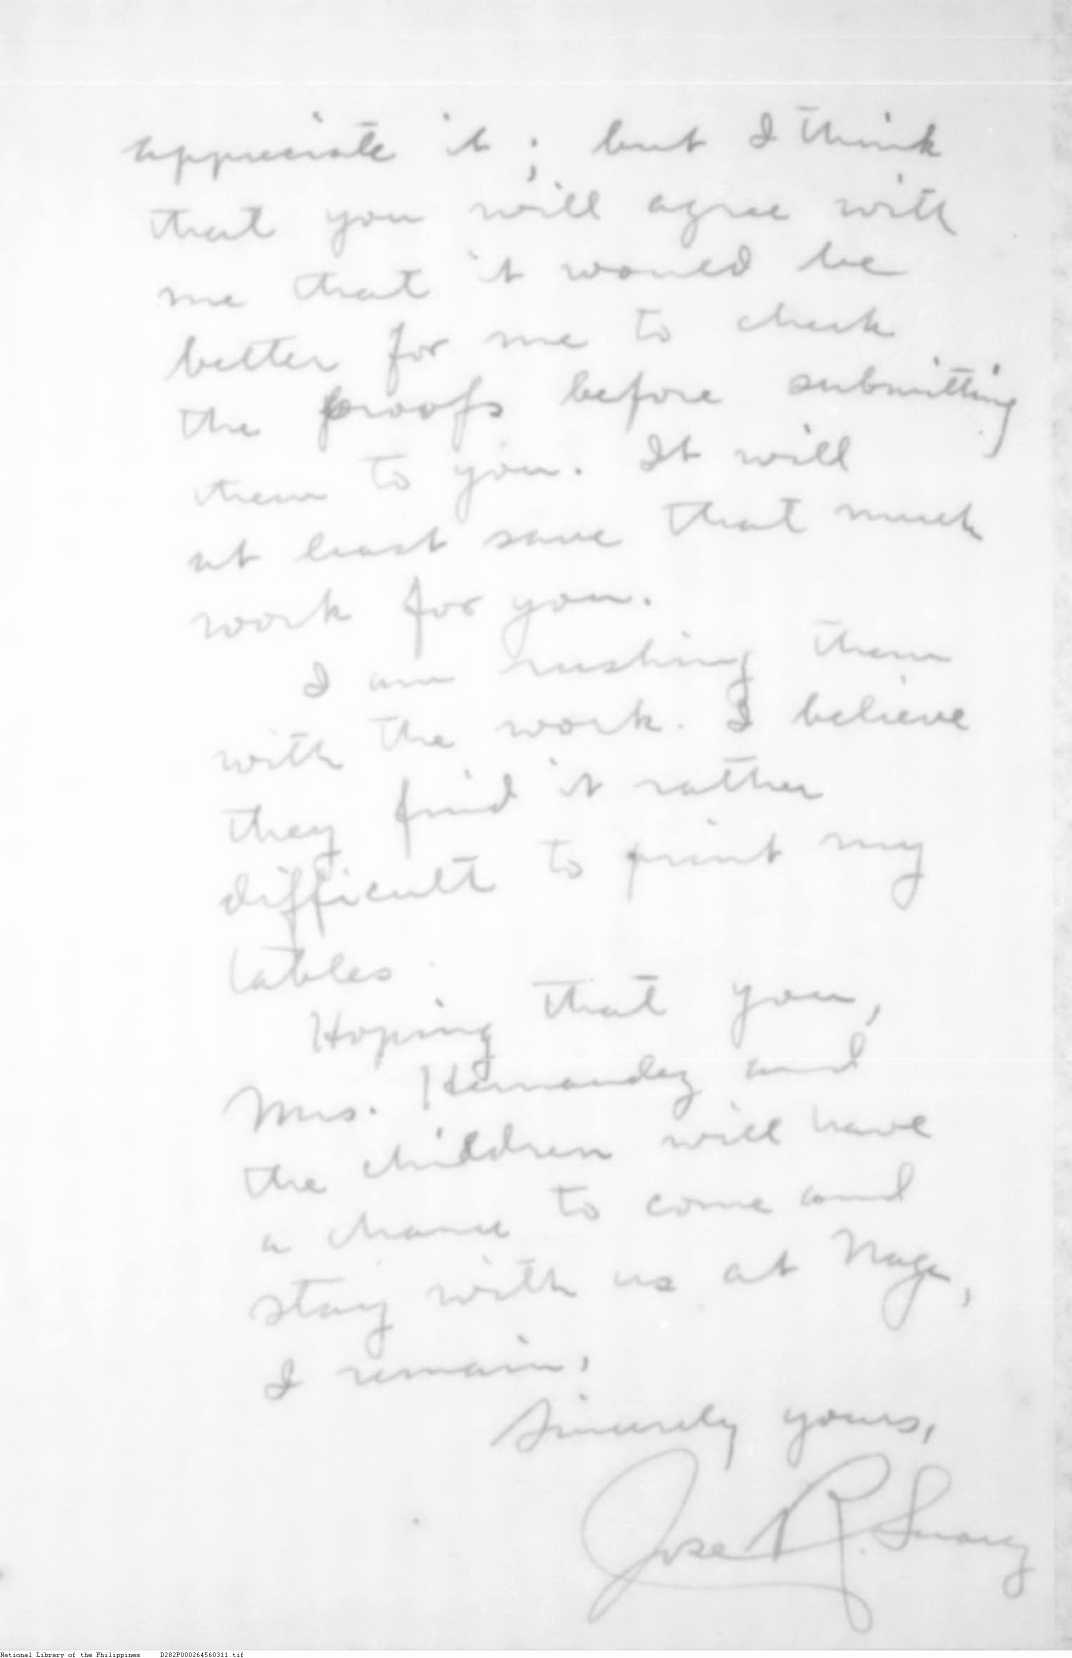 appreciate it; but I think
that you will agree with
me that it would be
better for me to check
the proofs before submitting
them to you. It will
at least save that much
work for you.
I am rushing them
with the work. I believe
they find it rather
difficult to print my
tables.
Hoping that you,
Mrs. Hernandez and
the children will have
a chance to come and
stay with us at Naga,
I remain,
Sincerely yours,
Jose R. Suarez
National Library of the Philippines D282P000264560311.tif